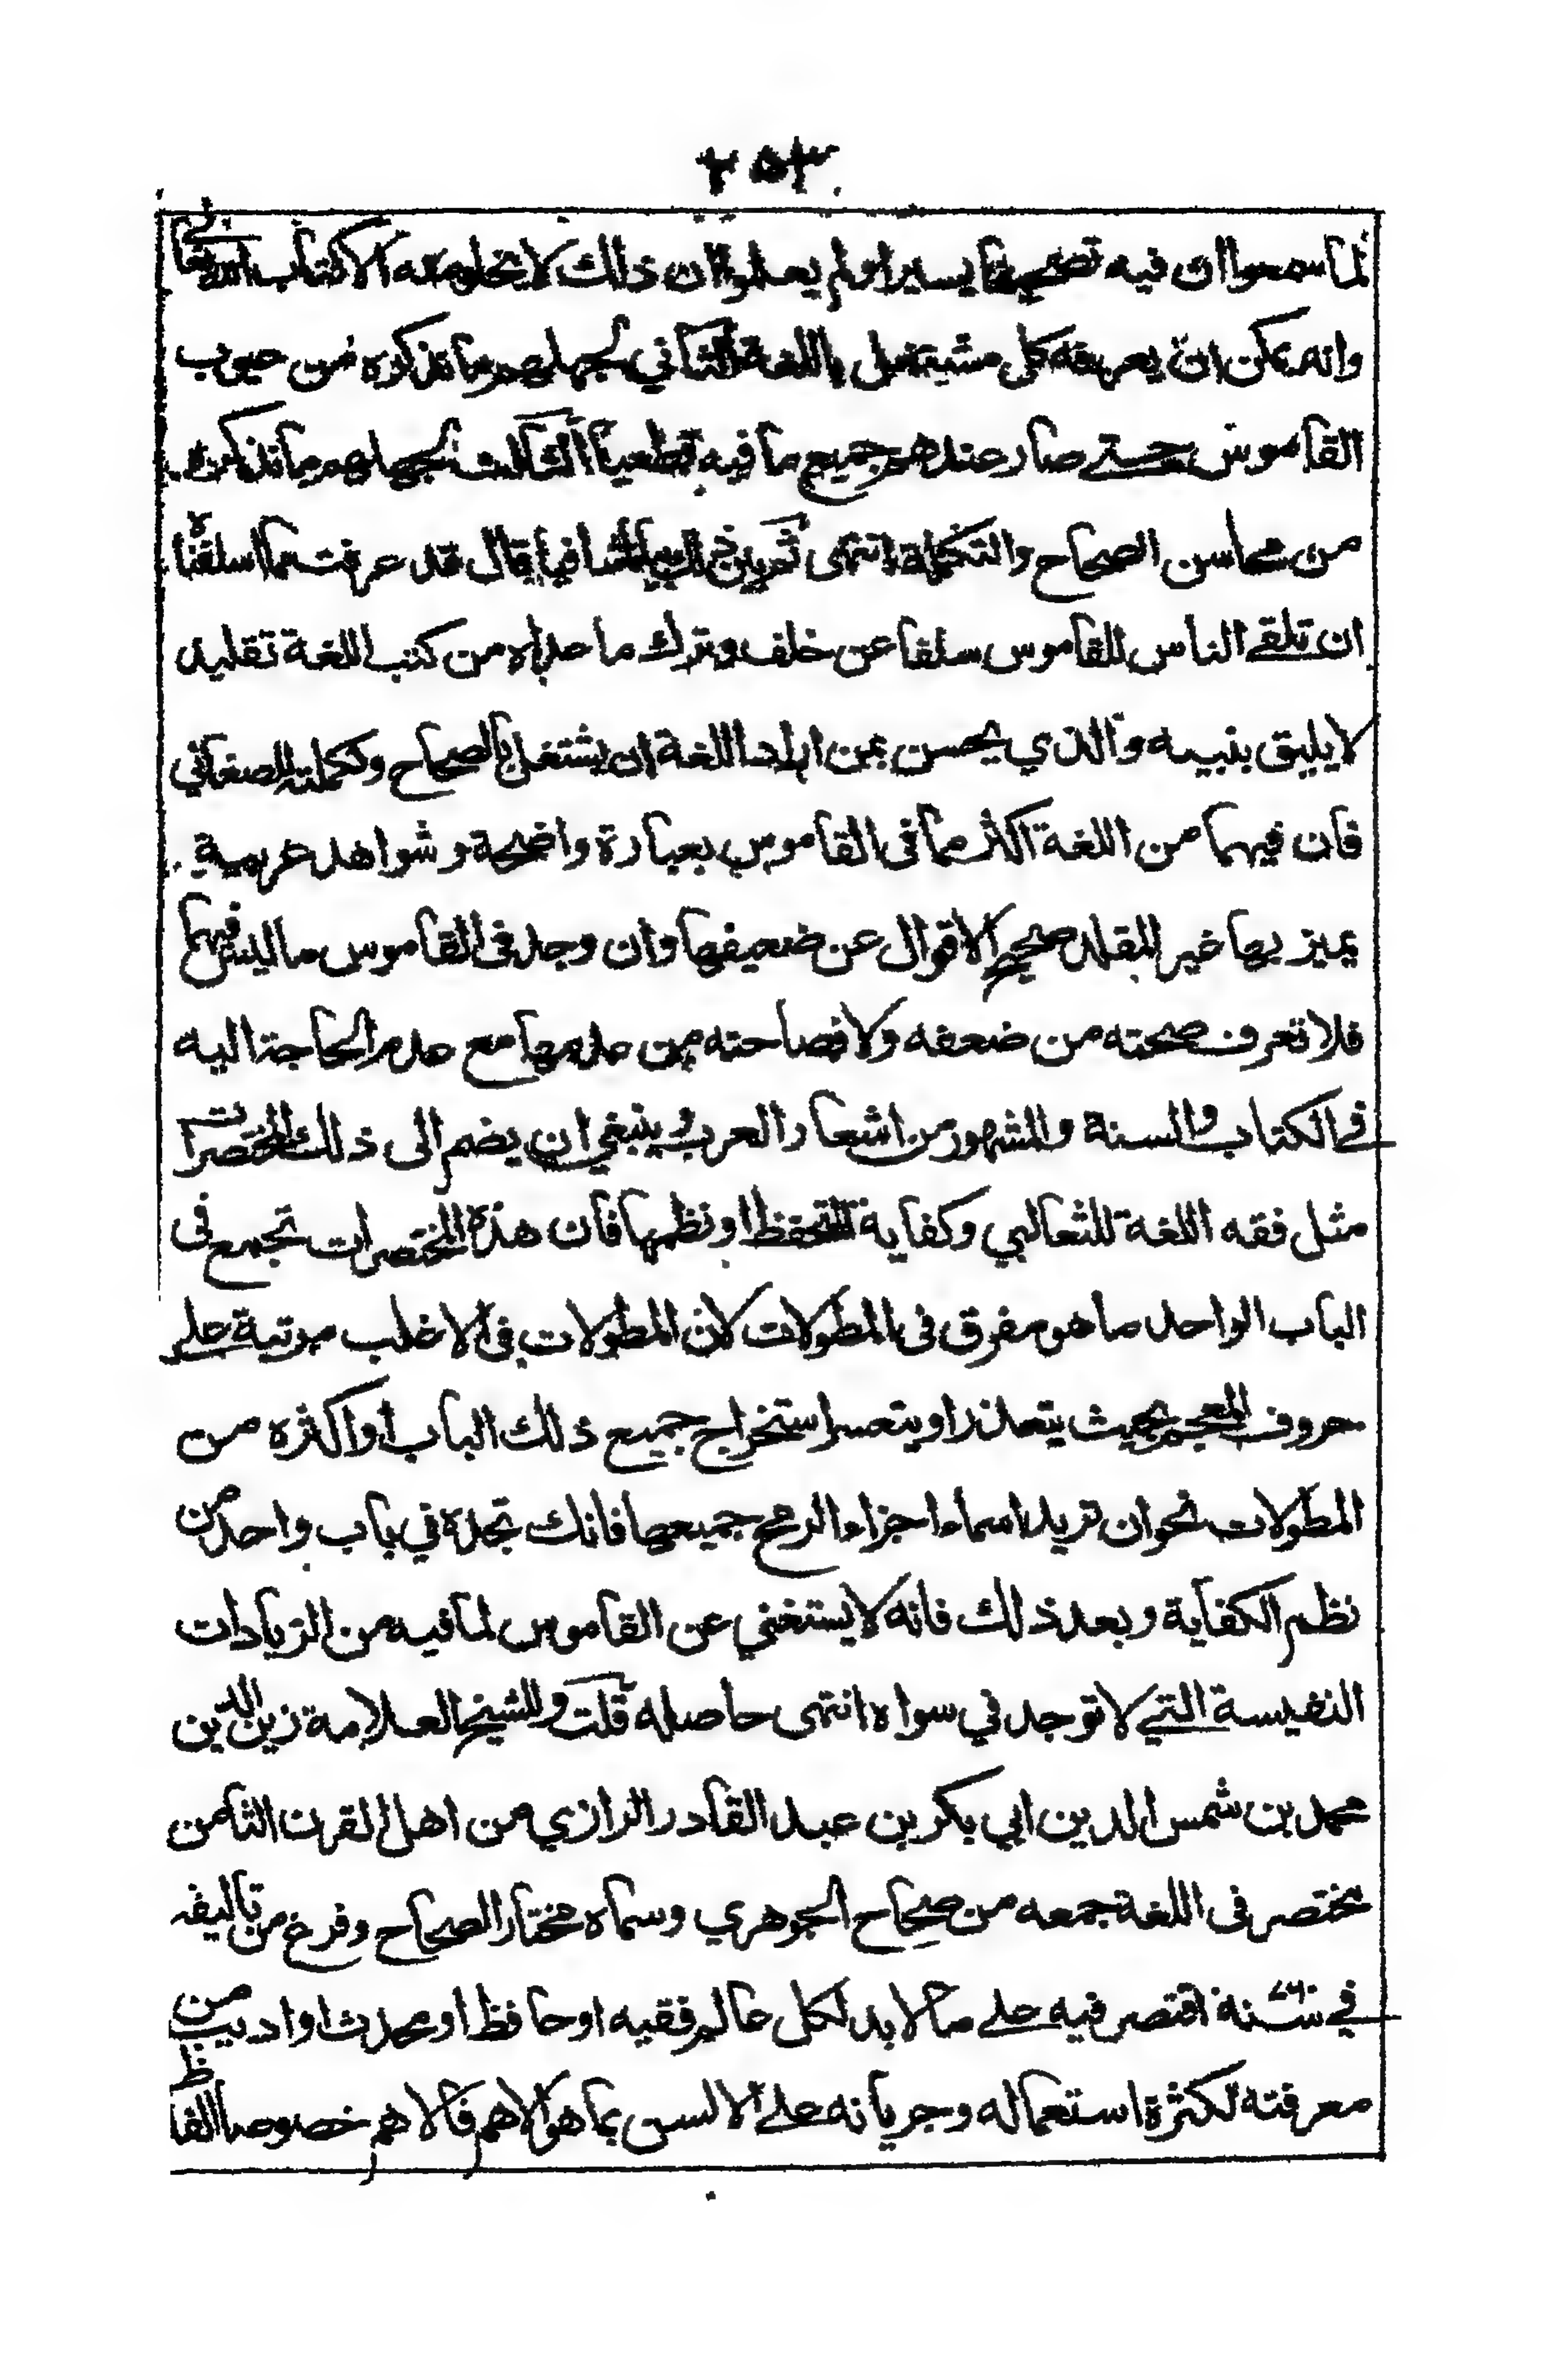 ٢٥٣
لما سمعوا ان فيه تصحيفا يسيرا ولم يعلموا ان ذلك لا يخلو عنه الا كتاب الله تعالى
وانه يمكن ان يعرفه كل مشتغل باللغة الثاني لجهلهم ما نذكره من عيوب
القاموس حتى صار عندهم جميع ما فيه قطعيا الثالث لجهلهم ما نذكره
من محاسن الصحاح والتكملة انتهى ثم بين ذلك بيانا شافيا قال قد عرفت مما اسلفناه
ان تلقي الناس للقاموس سلفا عن خلف وترك ما عداه من كتب اللغة تقليد
لا يليق بنبيه والذي يحسن بمن اراد اللغة ان يشتغل بالصحاح وتكملته للصغاني
فان فيهما من اللغة اكثر مما في القاموس بعبارة واضحة وشواهد عربية
يميز بها غير المقلد صحيح الاقوال عن ضعيفها وان وجد في القاموس ما ليس فيهما
فلا تعرف صحته من ضعفه ولا فصاحته من عدمها مع عدم الحاجة اليه
في الكتاب والسنة والمشهور من اشعار العرب وينبغي ان يضم الى ذلك المختصرات
مثل فقه اللغة للثعالبي وكفاية المتحفظ او نظمها فان هذه المختصرات تجمع في
الباب الواحد ما هو مفرق في المطولات لان المطولات في الاغلب مرتبة على
حروف المعجم بحيث يتعذر او يتعسر استخراج جميع ذلك الباب او اكثره من
المطولات نحو ان تريد اسماء اجزاء الرمح جميعها فانك تجده في باب واحد من
نظم الكفاية وبعد ذلك فانه لا يستغني عن القاموس لما فيه من الزيادات
النفيسة التي لا توجد في سواه انتهى حاصله قلت وللشيخ العلامة زين الدين
محمد بن شمس الدين ابي بكر بن عبد القادر الرازي من اهل القرن الثامن
مختصر في اللغة جمعه من صحاح الجوهري وسماه مختار الصحاح وفرغ من تاليفه
في سنة ٧٦٠ اقتصر فيه على ما لا بد لكل عالم فقيه او حافظ او محدث او اديب من
معرفته لكثرة استعماله وجريانه على الالسن بما هو الاهم فالاهم خصوصا الفاظ